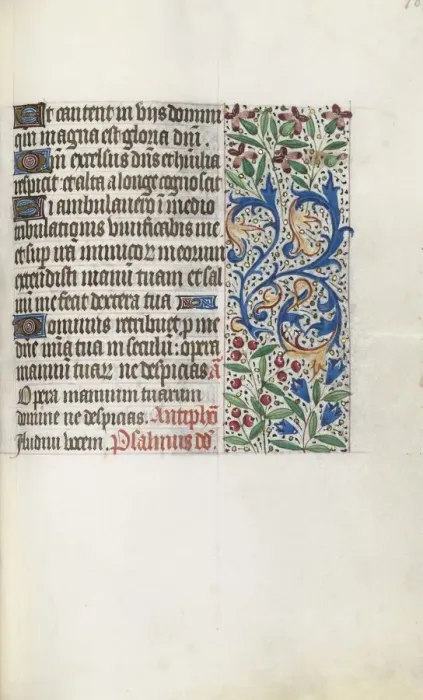 Et cantent in vijs domini
qm̄ magna est gloria dnī.
Qm̄ excelsus dn̄s et humilia
respicit: et alta a longe cognoscit
Si ambulavero ī medio
tribulationis vivificabis me
et sup irā inimicoꝝ meorum
extendisti manū tuam et sal
uū me fecit dextera tua
Dominus retribuet p me
dn̄e mīa tua in seculū: opera
manuū tuaꝝ ne despicias a
Opera manuum tuarum
domine ne despicias. Antiphō
Audiui vocem. Psalmus dd̄.